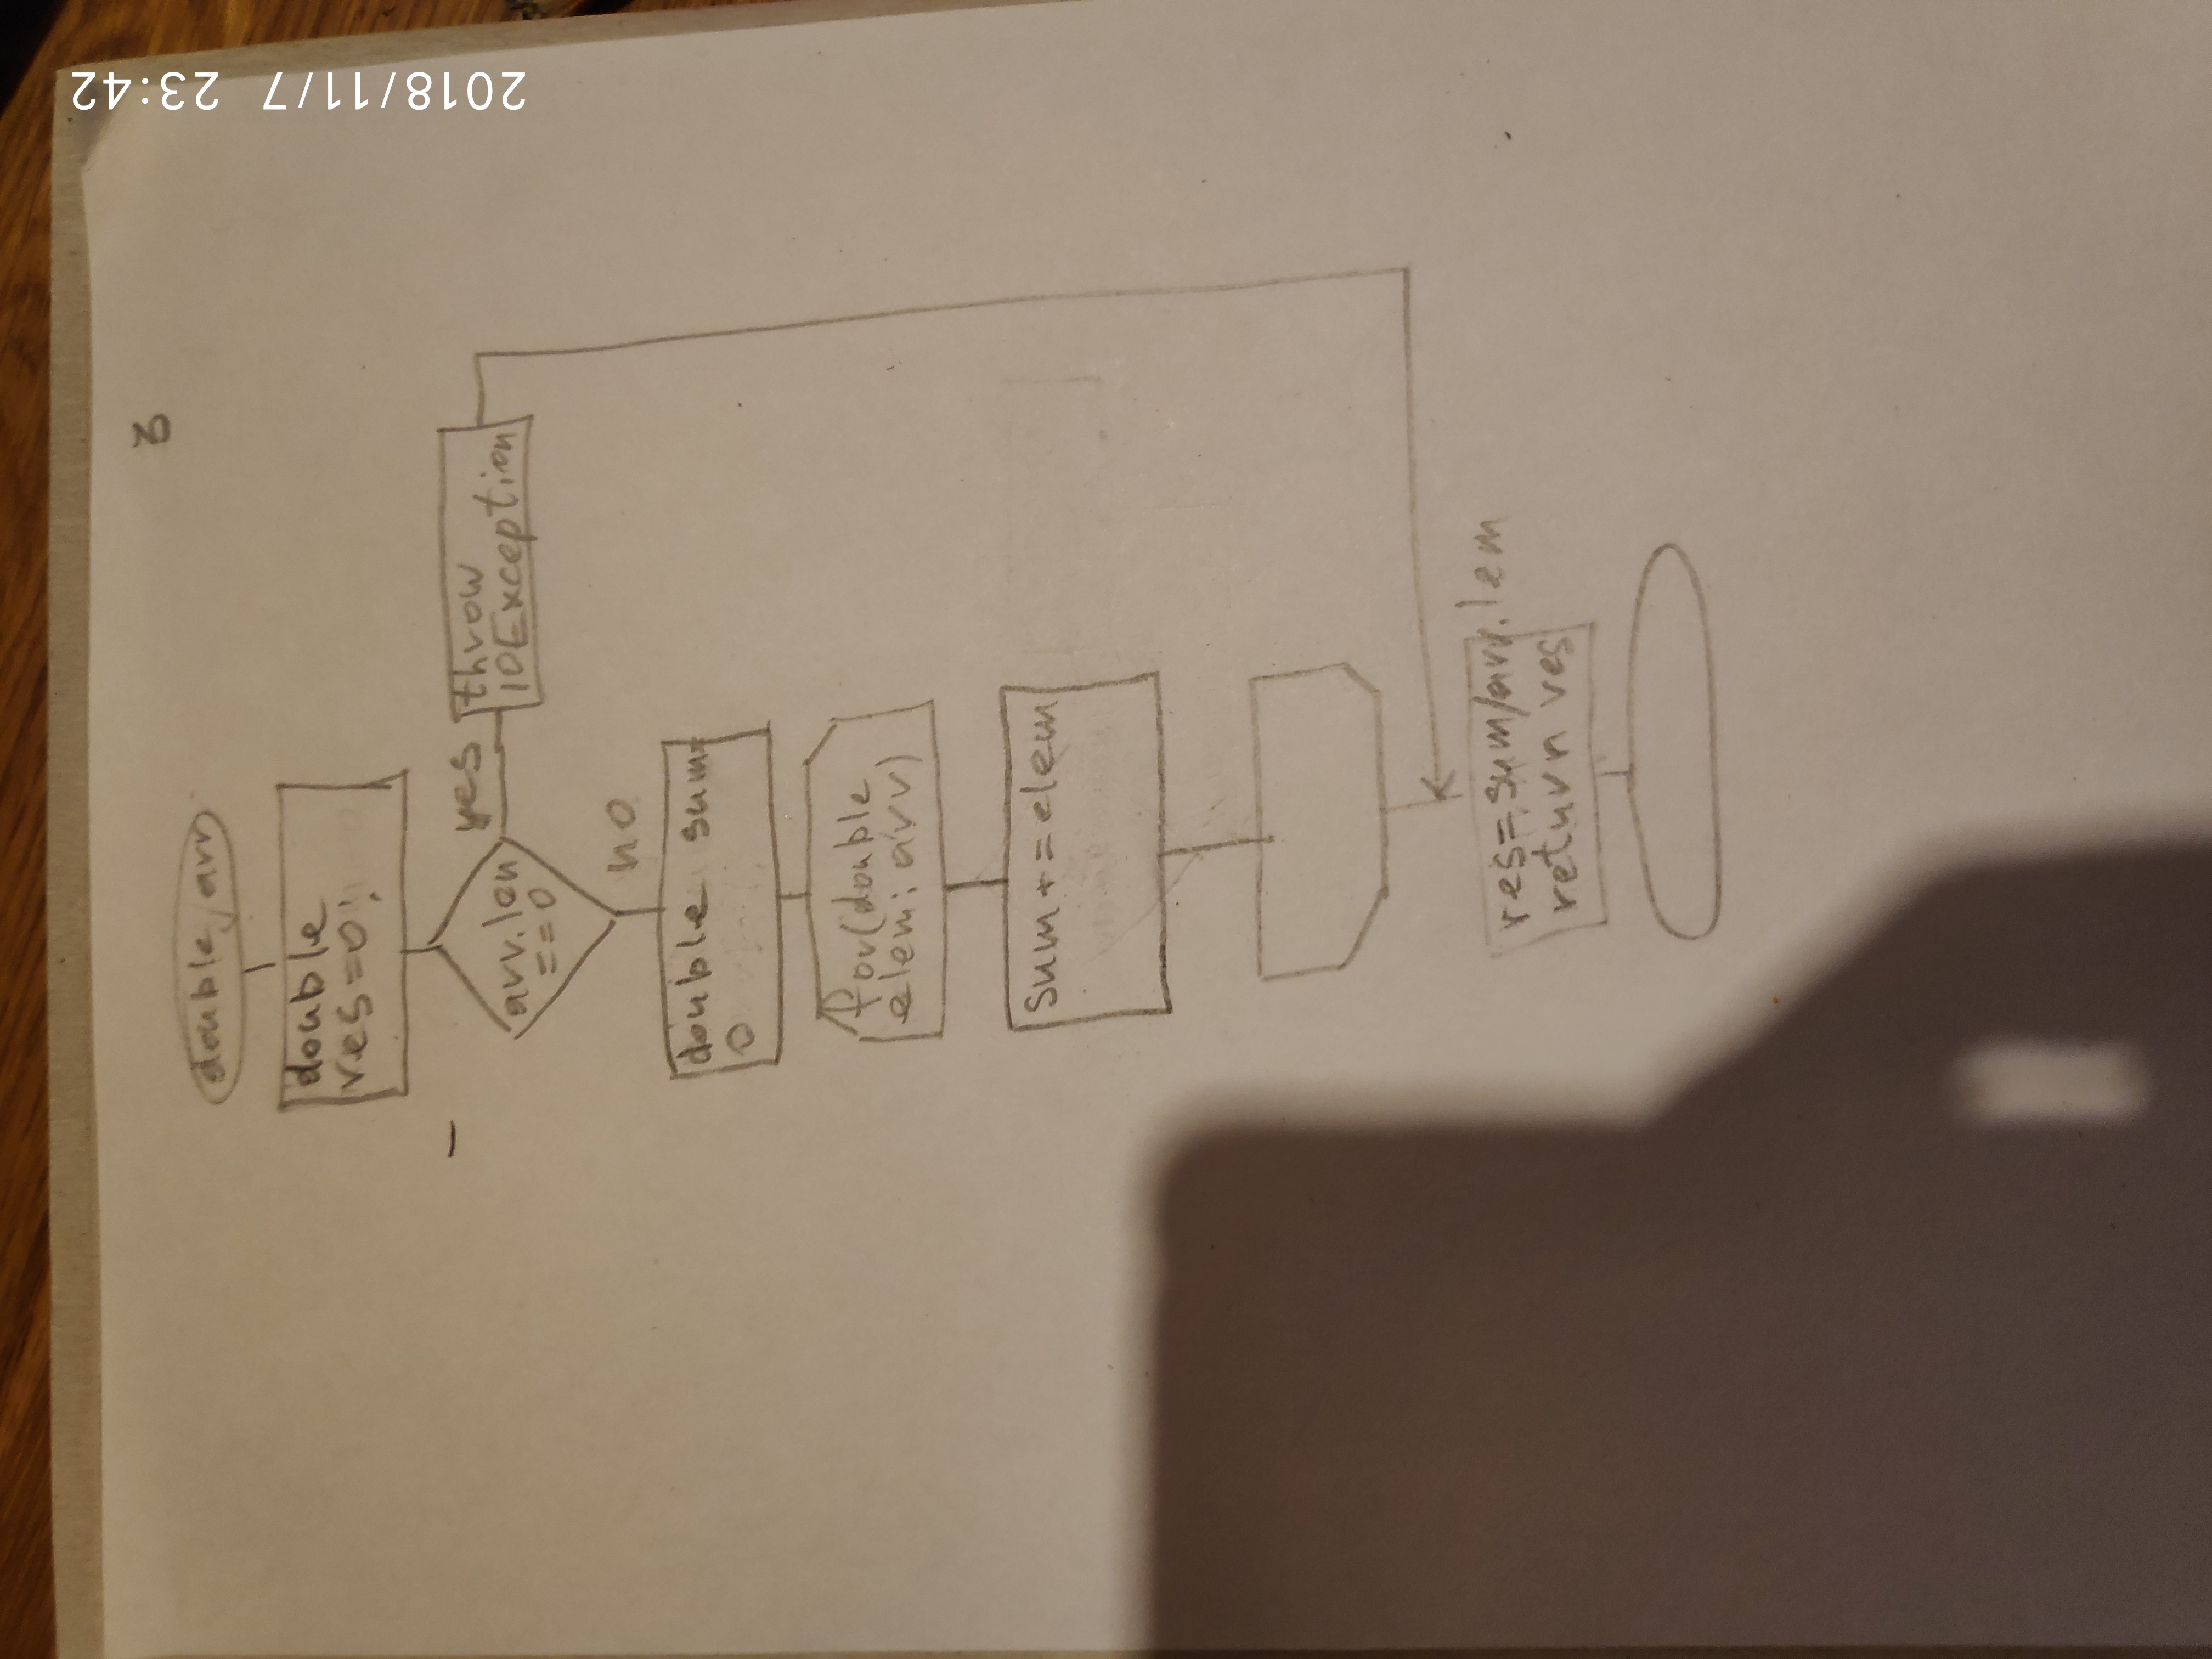 3
double, arr
double
res=0;
arr.len
==0
yes
throw
IOException
no
double sum=
0
for(double
elem: arr)
sum+=elem
res=sum/arr.len
return res
2018/11/7 23:42